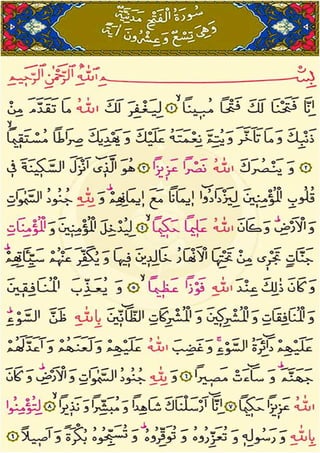 سُورَةُ الْفَتْحِ مَدَنِيَّةٌ
وَهِيَ تِسْعٌ وَعِشْرُونَ آيَةً
بِسْــــمِ اللّٰهِ الرَّحْمٰنِ الرَّحِيمِ
اِنَّا فَتَحْنَا لَكَ فَتْحًا مُبِينًاۙ ﴿١﴾ لِيَغْفِرَ لَكَ اللّٰهُ مَا تَقَدَّمَ مِنْ
ذَنْبِكَ وَمَا تَاَخَّرَ وَيُتِمَّ نِعْمَتَهُ عَلَيْكَ وَيَهْدِيَكَ صِرَاطًا مُسْتَقِيمًاۙ
﴿٢﴾ وَيَنْصُرَكَ اللّٰهُ نَصْرًا عَزِيزًا ﴿٣﴾ هُوَ الَّذٖٓى اَنْزَلَ السَّكِينَةَ فٖى
قُلُوبِ الْمُؤْمِنٖينَ لِيَزْدَادُٓوا اٖيمَانًا مَعَ اٖيمَانِهِمْۜ وَلِلّٰهِ جُنُودُ السَّمٰوَاتِ
وَالْاَرْضِۜ وَكَانَ اللّٰهُ عَلٖيمًا حَكٖيمًاۙ ﴿٤﴾ لِيُدْخِلَ الْمُؤْمِنٖينَ وَالْمُؤْمِنَاتِ
جَنَّاتٍ تَجْرٖى مِنْ تَحْتِهَا الْاَنْهَارُ خَالِدٖينَ فٖيهَا وَيُكَفِّرَ عَنْهُمْ سَيِّـَٔاتِهِمْۜ
وَكَانَ ذٰلِكَ عِنْدَ اللّٰهِ فَوْزًا عَظٖيمًاۙ ﴿٥﴾ وَيُعَذِّبَ الْمُنَافِقٖينَ
وَالْمُنَافِقَاتِ وَالْمُشْرِكٖينَ وَالْمُشْرِكَاتِ الظَّٓانّٖينَ بِاللّٰهِ ظَنَّ السَّوْءِۜ
عَلَيْهِمْ دَٓائِرَةُ السَّوْءِۚ وَغَضِبَ اللّٰهُ عَلَيْهِمْ وَلَعَنَهُمْ وَاَعَدَّ لَهُمْ
جَهَنَّمَۜ وَسَٓاءَتْ مَصٖيرًا ﴿٦﴾ وَلِلّٰهِ جُنُودُ السَّمٰوَاتِ وَالْاَرْضِۜ وَكَانَ
اللّٰهُ عَزٖيزًا حَكٖيمًا ﴿٧﴾ اِنَّٓا اَرْسَلْنَاكَ شَاهِدًا وَمُبَشِّرًا وَنَذٖيرًاۙ ﴿٨﴾ لِتُؤْمِنُوا
بِاللّٰهِ وَرَسُولِهٖ وَتُعَزِّرُوهُ وَتُوَقِّرُوهُۜ وَتُسَبِّحُوهُ بُكْرَةً وَاَصٖيلًا ﴿٩﴾